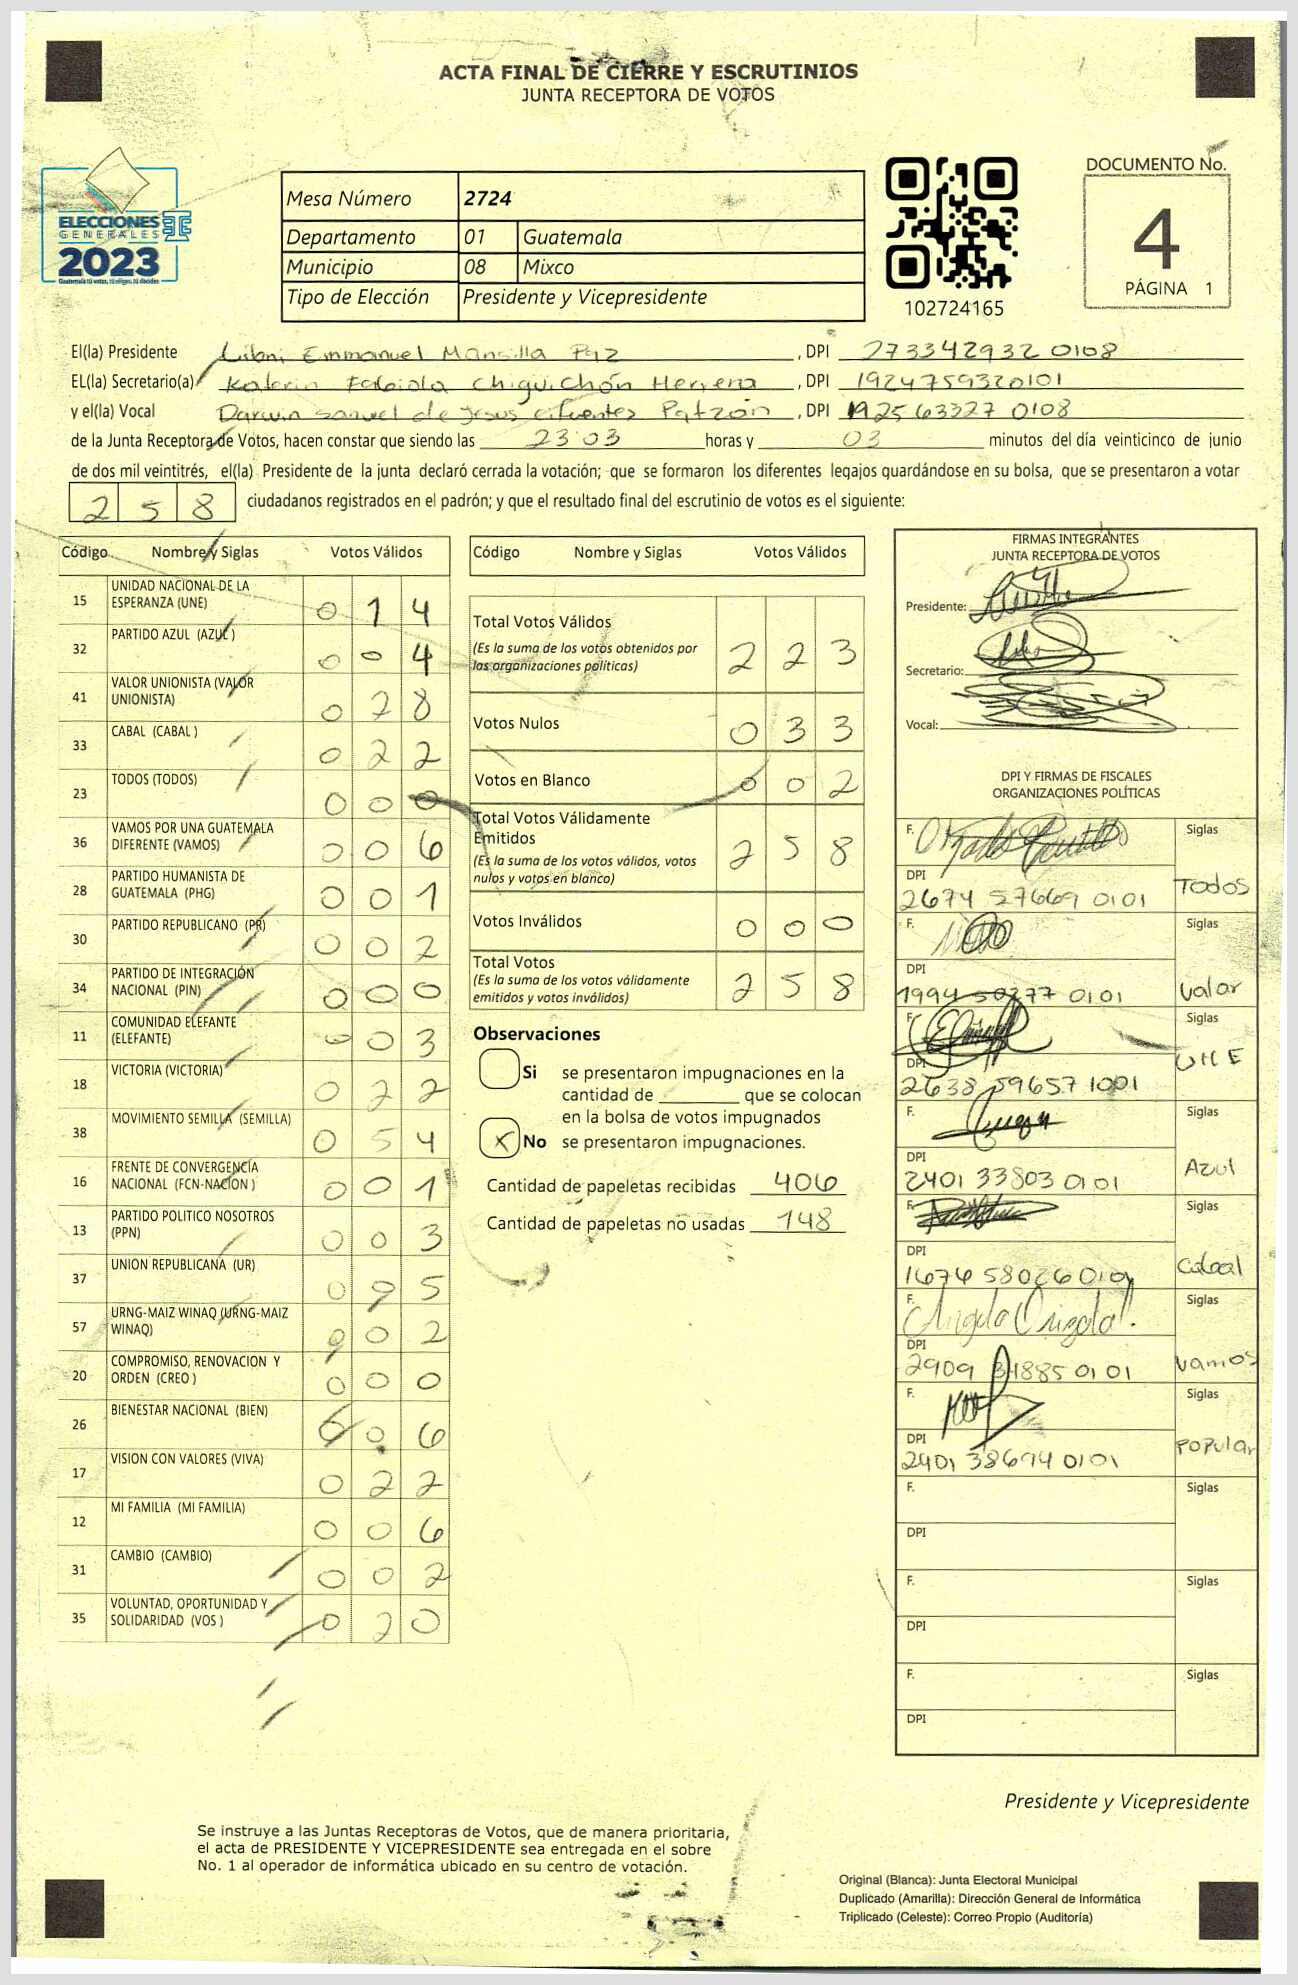 ACTA FINAL DE CIERRE Y ESCRUTINIOS
JUNTA RECEPTORA DE VOTOS
ELECCIONES
GENERALES
2023
Guatemala tú votas, tú eliges, tú decides
Mesa Número 2724
Departamento 01 Guatemala
Municipio 08 Mixco
Tipo de Elección Presidente y Vicepresidente
102724165
DOCUMENTO No.
4
PÁGINA 1
El(la) Presidente Libni Emmanuel Mansilla Paz, DPI 273342932 0108
EL(la) Secretario(a) Katerin Fabiola Chiguichón Herrera, DPI 1924759320101
y el(la) Vocal Darwin Samuel de Jesus cifuentes Patzón, DPI 192563327 0108
de la Junta Receptora de Votos, hacen constar que siendo las 23:03 horas y 03 minutos del día veinticinco de junio
de dos mil veintitrés, el(la) Presidente de la junta declaró cerrada la votación; que se formaron los diferentes legajos guardándose en su bolsa, que se presentaron a votar
258 ciudadanos registrados en el padrón; y que el resultado final del escrutinio de votos es el siguiente:
Código Nombre y Siglas Votos Válidos
15 UNIDAD NACIONAL DE LA ESPERANZA (UNE) 0 1 4
32 PARTIDO AZUL (AZUL ) 0 0 4
41 VALOR UNIONISTA (VALOR UNIONISTA) 0 28
33 CABAL (CABAL ) 0 2 2
23 TODOS (TODOS) 0 0 0
36 VAMOS POR UNA GUATEMALA DIFERENTE (VAMOS) 0 0 6
28 PARTIDO HUMANISTA DE GUATEMALA (PHG) 0 0 1
30 PARTIDO REPUBLICANO (PR) 0 0 2
34 PARTIDO DE INTEGRACIÓN NACIONAL (PIN) 0 0 0
11 COMUNIDAD ELEFANTE (ELEFANTE) 0 0 3
18 VICTORIA (VICTORIA) 0 2 2
38 MOVIMIENTO SEMILLA (SEMILLA) 0 5 4
16 FRENTE DE CONVERGENCIA NACIONAL (FCN-NACION ) 0 0 1
13 PARTIDO POLITICO NOSOTROS (PPN) 0 0 3
37 UNION REPUBLICANA (UR) 0 5
57 URNG-MAIZ WINAQ (URNG-MAIZ WINAQ) 0 0 2
20 COMPROMISO, RENOVACION Y ORDEN (CREO ) 0 0 0
26 BIENESTAR NACIONAL (BIEN) 0 0 6
17 VISION CON VALORES (VIVA) 0 2 2
12 MI FAMILIA (MI FAMILIA) 0 0 6
31 CAMBIO (CAMBIO) 0 0 2
35 VOLUNTAD, OPORTUNIDAD Y SOLIDARIDAD (VOS ) 0 2 0
Código Nombre y Siglas Votos Válidos
Total Votos Válidos 2 2 3
(Es la suma de los votos obtenidos por
las organizaciones políticas)
Votos Nulos 0 3 3
Votos en Blanco 0 0 2
Total Votos Válidamente
Emitidos 2 5 8
(Es la suma de los votos válidos, votos
nulos y votos en blanco)
Votos Inválidos 0 0 0
Total Votos 2 5 8
(Es la suma de los votos válidamente
emitidos y votos inválidos)
Observaciones
Si se presentaron impugnaciones en la
cantidad de ________ que se colocan
en la bolsa de votos impugnados
x No se presentaron impugnaciones.
Cantidad de papeletas recibidas 406
Cantidad de papeletas no usadas 148
FIRMAS INTEGRANTES
JUNTA RECEPTORA DE VOTOS
Presidente:
Secretario:
Vocal:
DPI Y FIRMAS DE FISCALES
ORGANIZACIONES POLÍTICAS
F. Siglas
DPI
2674 57669 0101 Todos
F. Siglas
DPI
1994 50377 0101 Valor
F. Siglas
DPI
2638 59657 1001 UNE
F. Siglas
DPI
2401 33803 0101 Azul
F. Siglas
DPI
1676 58026 0101 Cabal
F. Siglas
DPI
2909 34885 0101 vamos
F. Siglas
DPI
2401 38694 0101 Popular
F. Siglas
DPI
F. Siglas
DPI
F. Siglas
DPI
Presidente y Vicepresidente
Se instruye a las Juntas Receptoras de Votos, que de manera prioritaria,
el acta de PRESIDENTE Y VICEPRESIDENTE sea entregada en el sobre
No. 1 al operador de informática ubicado en su centro de votación.
Original (Blanca): Junta Electoral Municipal
Duplicado (Amarilla): Dirección General de Informática
Triplicado (Celeste): Correo Propio (Auditoría)